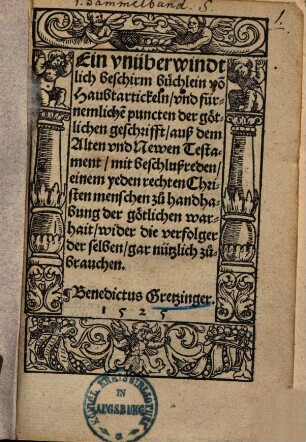 1. Sammelband. 5
1.
Ein vnüberwindt
lich beschirm büchlein võ
Haubtartickeln/vnd für-
nemlichẽ puncten der göt
lichen geschrifft/auß dem
Alten vnd Newen Testa-
ment/mit beschlußreden/
einem yeden rechten Chri-
sten menschen zů handha-
bung der götlichen war-
hait/wider die verfolger
der selben/gar nützlich zů-
brauchen.
¶ Benedictus Gretzinger.
1525
IN
AUGSBURG